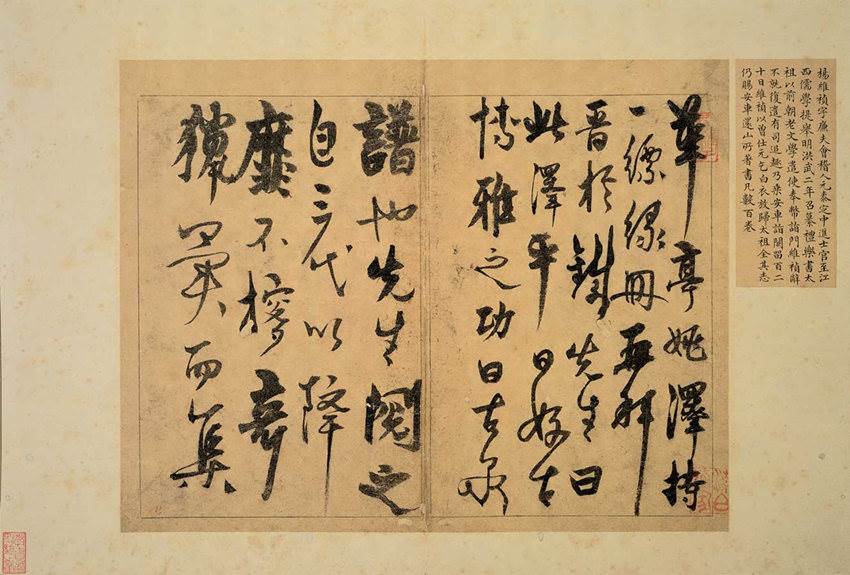 楊維禎字廉夫會稽人元泰定中進士官至江
西儒學提舉明洪武二年召纂禮樂書太
祖以前朝老文學遣使奉幣詣門維禎辭
不就復遣有司追趣乃乘安車詣闕留百二
十日維禎以曾仕元乞白衣放歸太祖全其志
仍賜安車還山所著書凡數百卷
華亭姚澤持
一縹緣冊再拜
晉於鐵先生曰
此澤平日好古
博雅之功曰古泉
譜也先生閱之
自三代以降
靡不搜奇
獵異而集